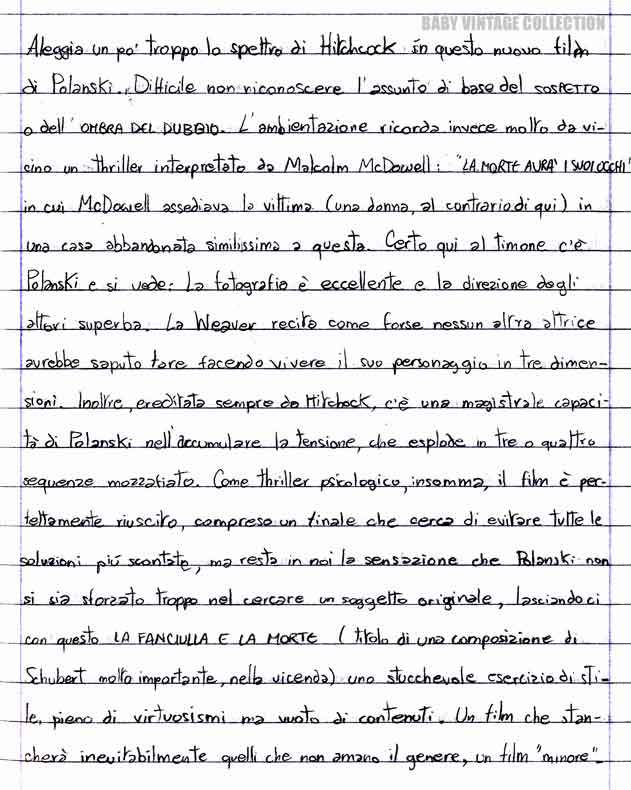 BABY VINTAGE COLLECTION
Aleggia un po' troppo lo spettro di Hitchcock in questo nuovo film
di Polanski. Difficile non riconoscere l'assunto di base del SOSPETTO
o dell'OMBRA DEL DUBBIO. L'ambientazione ricorda invece molto da vi-
cino un thriller interpretato da Malcolm McDowell: "LA MORTE AVRA' I SUOI OCCHI"
in cui McDowell assediava la vittima (una donna, al contrario di qui) in
una casa abbandonata similissima a questa. Certo qui al timone c'è
Polanski e si vede: la fotografia è eccellente e la direzione degli
attori superba. La Weaver recita come forse nessun altra attrice
avrebbe saputo fare facendo vivere il suo personaggio in tre dimen-
sioni. Inoltre, ereditata sempre da Hitchcock, c'è una magistrale capaci-
tà di Polanski nell'accumulare la tensione, che esplode in tre o quattro
sequenze mozzafiato. Come thriller psicologico, insomma, il film è per-
fettamente riuscito, compreso un finale che cerca di evitare tutte le
soluzioni più scontate, ma resta in noi la sensazione che Polanski non
si sia sforzato troppo nel cercare un soggetto originale, lasciandoci
con questo LA FANCIULLA E LA MORTE (titolo di una composizione di
Schubert molto importante, nella vicenda) uno stucchevole esercizio di sti-
le, pieno di virtuosismi ma vuoto di contenuti. Un film che stan-
cherà inevitabilmente quelli che non amano il genere, un film "minore".